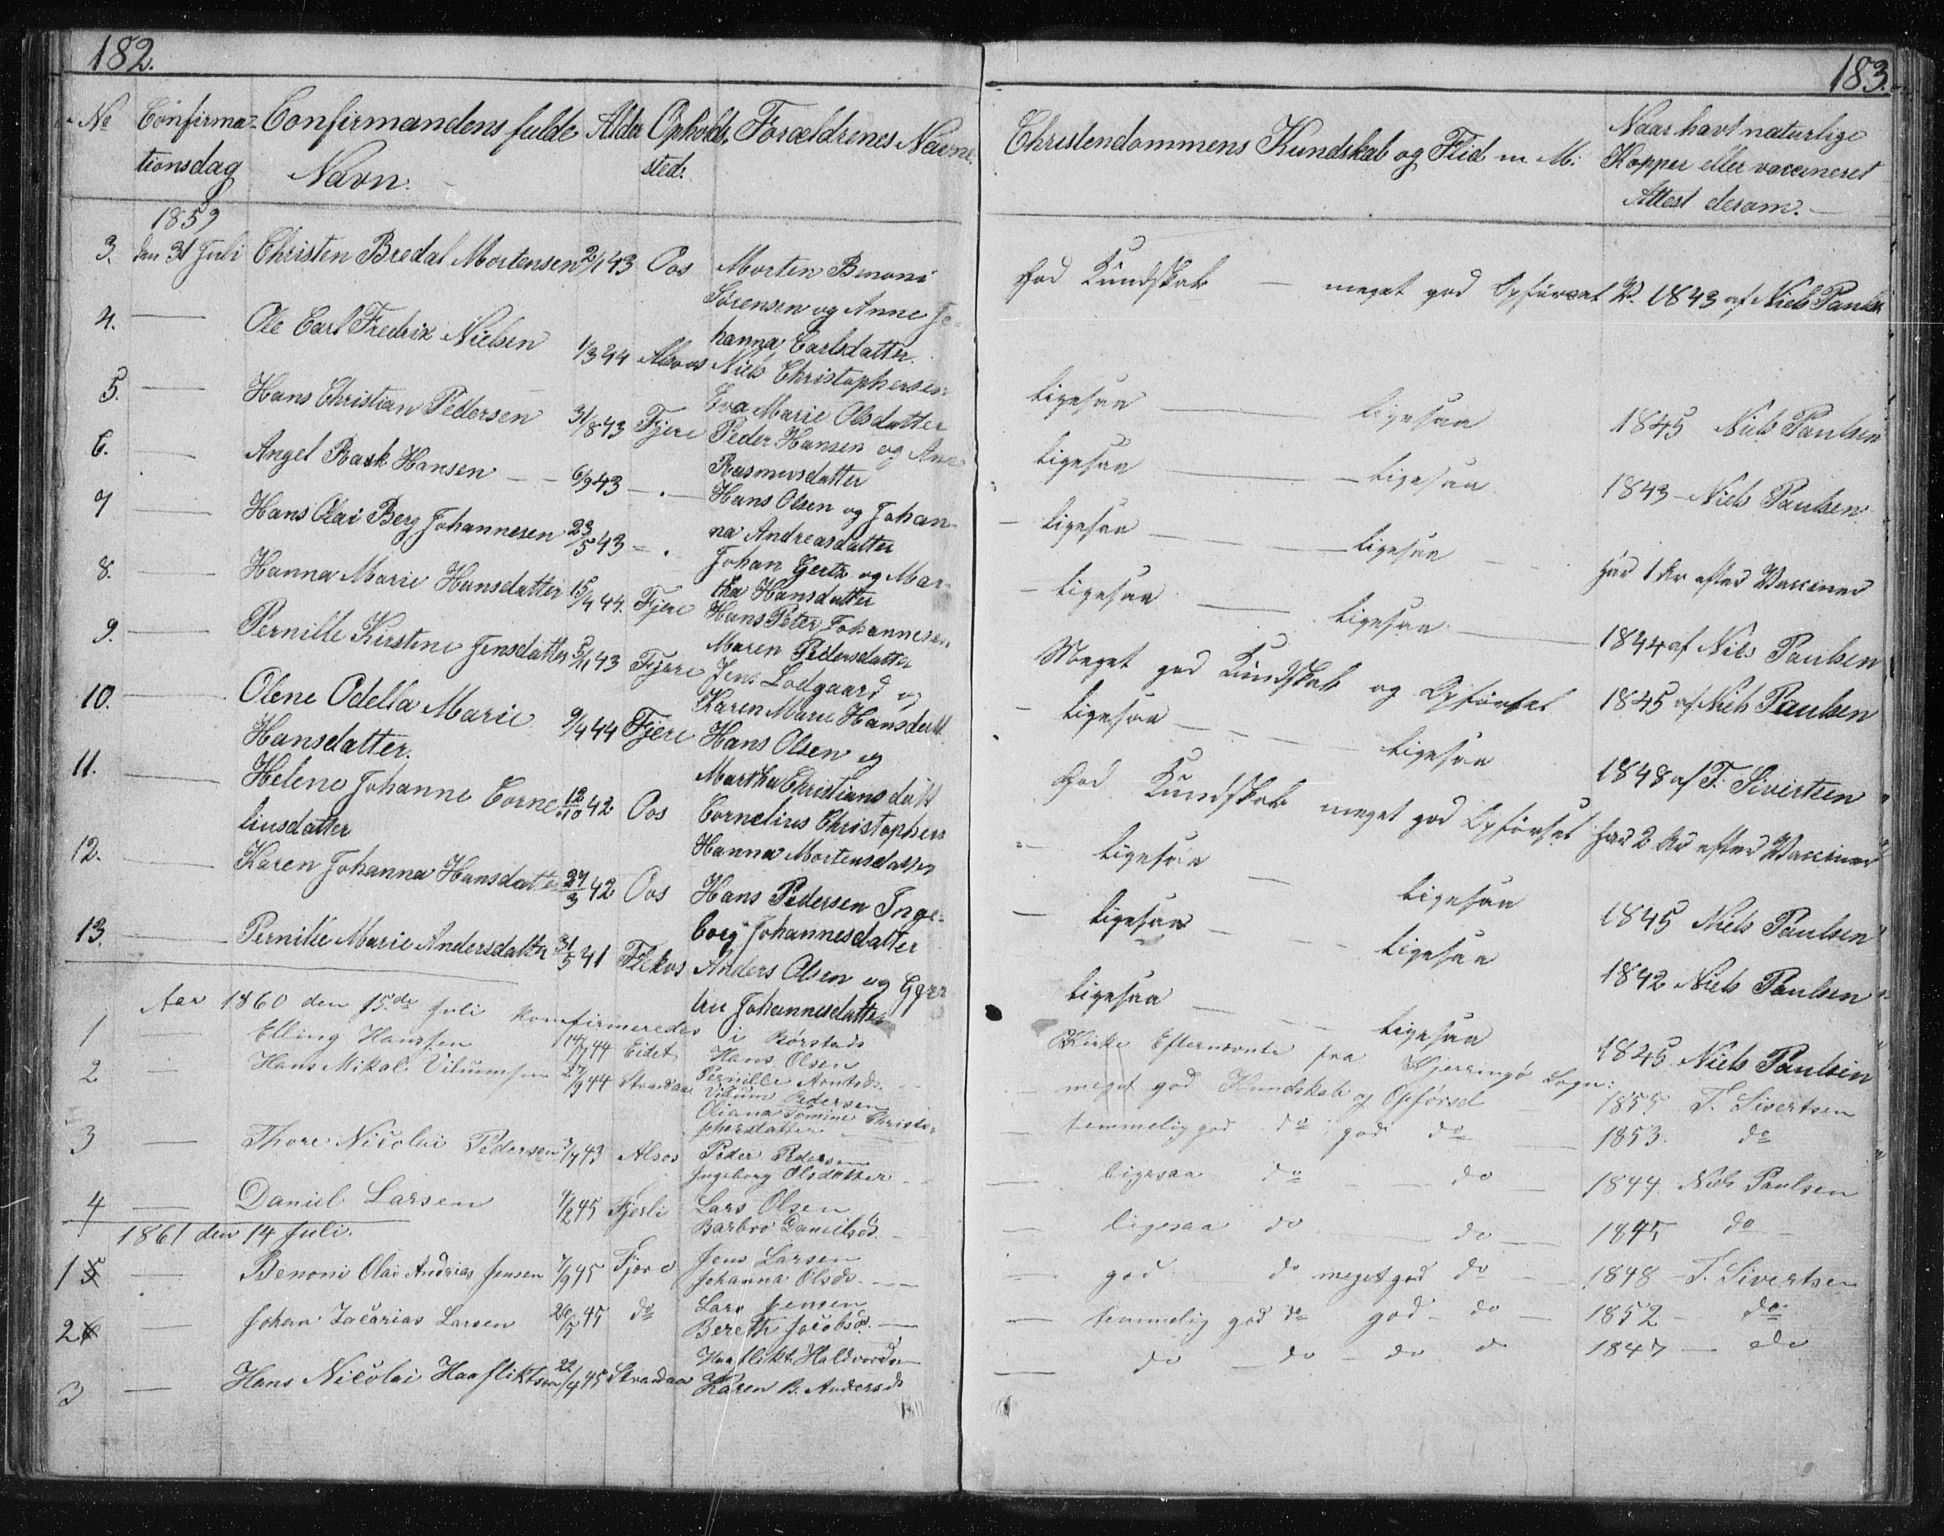 182.
No Confirma- Confirmandens fulde Alder Opholds Forældrenes Navne.
tionsdag Navn. sted.
1859
3. den 31 Juli Christen Bredal Mortensen 2/1 43 Oos Morten Benoni
Sørensen og Anne Jo-
hanna Carlsdatter.
4. — Ole Carl Fredrik Nielsen 1/3 44 Alsoos Niels Christophersen
Eva Marie Olsdatter
5. — Hans Christian Pedersen 31/8 43 Fjere Peder Hansen og Ane
Rasmusdatter
6. — Angel Rask Hansen — 6/9 43 — . — Hans Olsen og Johan-
na Andreasdatter
7 — Hans Olai Berg Johannesen 23/5 43 — . Johan Gertz og Mar-
tha Hansdatter
8. — Hanna Marie Hansdatter 15/4 44. Fjere Hans Peter Johannesen
Maren Pedersdatter
9. — Pernille Kirstine Jensdatter 5/11 43 Fjere Jens Lodgaard og
Karen Marie Hansdatt
10. — Olene Odella Marie 9/4 44 Fjere Hans Olsen og
Hansdatter. Martha Christiansdatt
11. — Helene Johanne Corne- 12/10 42 Oos Cornelius Christophers
liusdatter Hanna Mortensdatter
12. — Karen Johanna Hansdatter 27/3 42 Oos Hans Pedersen Inge-
borg Johannesdatter
13. — Pernille Marie Andersdatter 31/5 41 Flekos Anders Olsen og
Johannesdatter
Aar 1860 den 15.de Juli komfirmeredes i Børstads
1 — Elling Hanssen 14/7 44 Eidet Hans Olsen
Pernille Arntsd.
2 — Hans Mikal Vilumsen 27/9 44 Strandaa Vilum Pedersen
Oliana Tomine Christo-
phersdatter
3 — Thore Nicolai Pedersen 3/7 43 Alsos Peder Pedersen
Ingeborg Olsdatter
4 — Daniel Larsen 4/2 45 Fjerli Lars Olsen
Barbro Danielsd.
1861 den 14 Juli.
1 5 — Benoni Olai Andrias Jensen 7/9 45 Fjære Jens Larsen
Johanna Olsd. —
2 6 Johan Zacarias Larsen 26/5 45 do Lars Jensen
Bereth Jacobsd. —
3 — Hans Nicolai Haafliktsen 22/4 45 Strandaa Haaflikt Haldvorsen
Karen B. Andersd
183.
Christendommens Kundskab og Flid m. M: Naar havt naturlige
Kopper eller vaccineret
Attest derom. —
God Kundskab — meget god Opførsel V. 1843 af Niels Paulsen
Ligesaa — Ligesaa 1845 Niels Paulsen
Ligesaa — Ligesaa 1843 — Niels Paulsen.
— Ligesaa — Ligesaa — har 1 Ar efter Vaccinen
— Ligesaa — Ligesaa — 1844 af Niels Paulsen
Meget god Kundskab og Opførsel 1845 af Niels Paulsen
— Ligesaa — Ligesaa 1848 af T. Sivertsen
God Kundskab meget god Opførsel har 2 Ar efter Vaccinen
Ligesaa — Ligesaa 1845 Niels Paulsen
— Ligesaa — Ligesaa 1842 Niels Paulsen
Ligesaa — Ligesaa 1845 Niels Paulsen
Kirke fra Kjerringø Sogn:
— meget god Kundskab og Opførsel 1855 T. Sivertsen
— temmelig god do god do — 1853. do
— ligesaa do — do — 1844 Niels Paulsen
— ligesaa do — do — 1845 do —
— god do meget god do — 1848 — T. Sivertsen
— temmelig god do god — do — 1852 — do
— do — do — do do 1847 — do